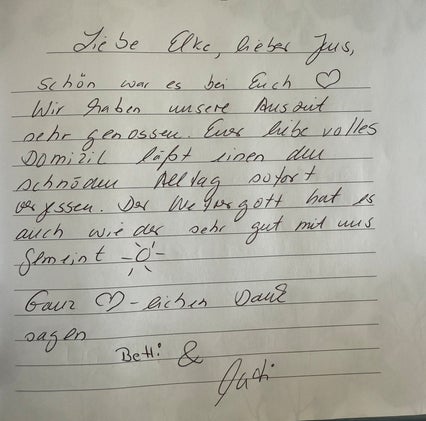 Liebe Elke, lieber Jus,
schön war es bei Euch ♡
Wir haben unsere Auszeit
sehr genossen. Euer liebevolles
Domizil läßt einen den
schnöden Alltag sofort
vergessen. Der Wettergott hat es
auch wieder sehr gut mit uns
gemeint
Ganz ♡-lichen Dank
sagen
Betti &